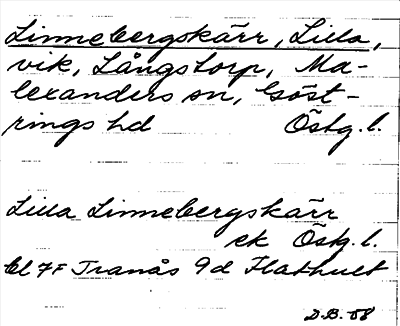 Linnebergskärr, Lilla,
vik, Långstorp, Ma-
lexanders sn, Göst-
rings hd Östg. l.
Lilla Linnebergskärr
ek Östg. l.
bl 7F Tranås 9d Flathult
D.B. 58